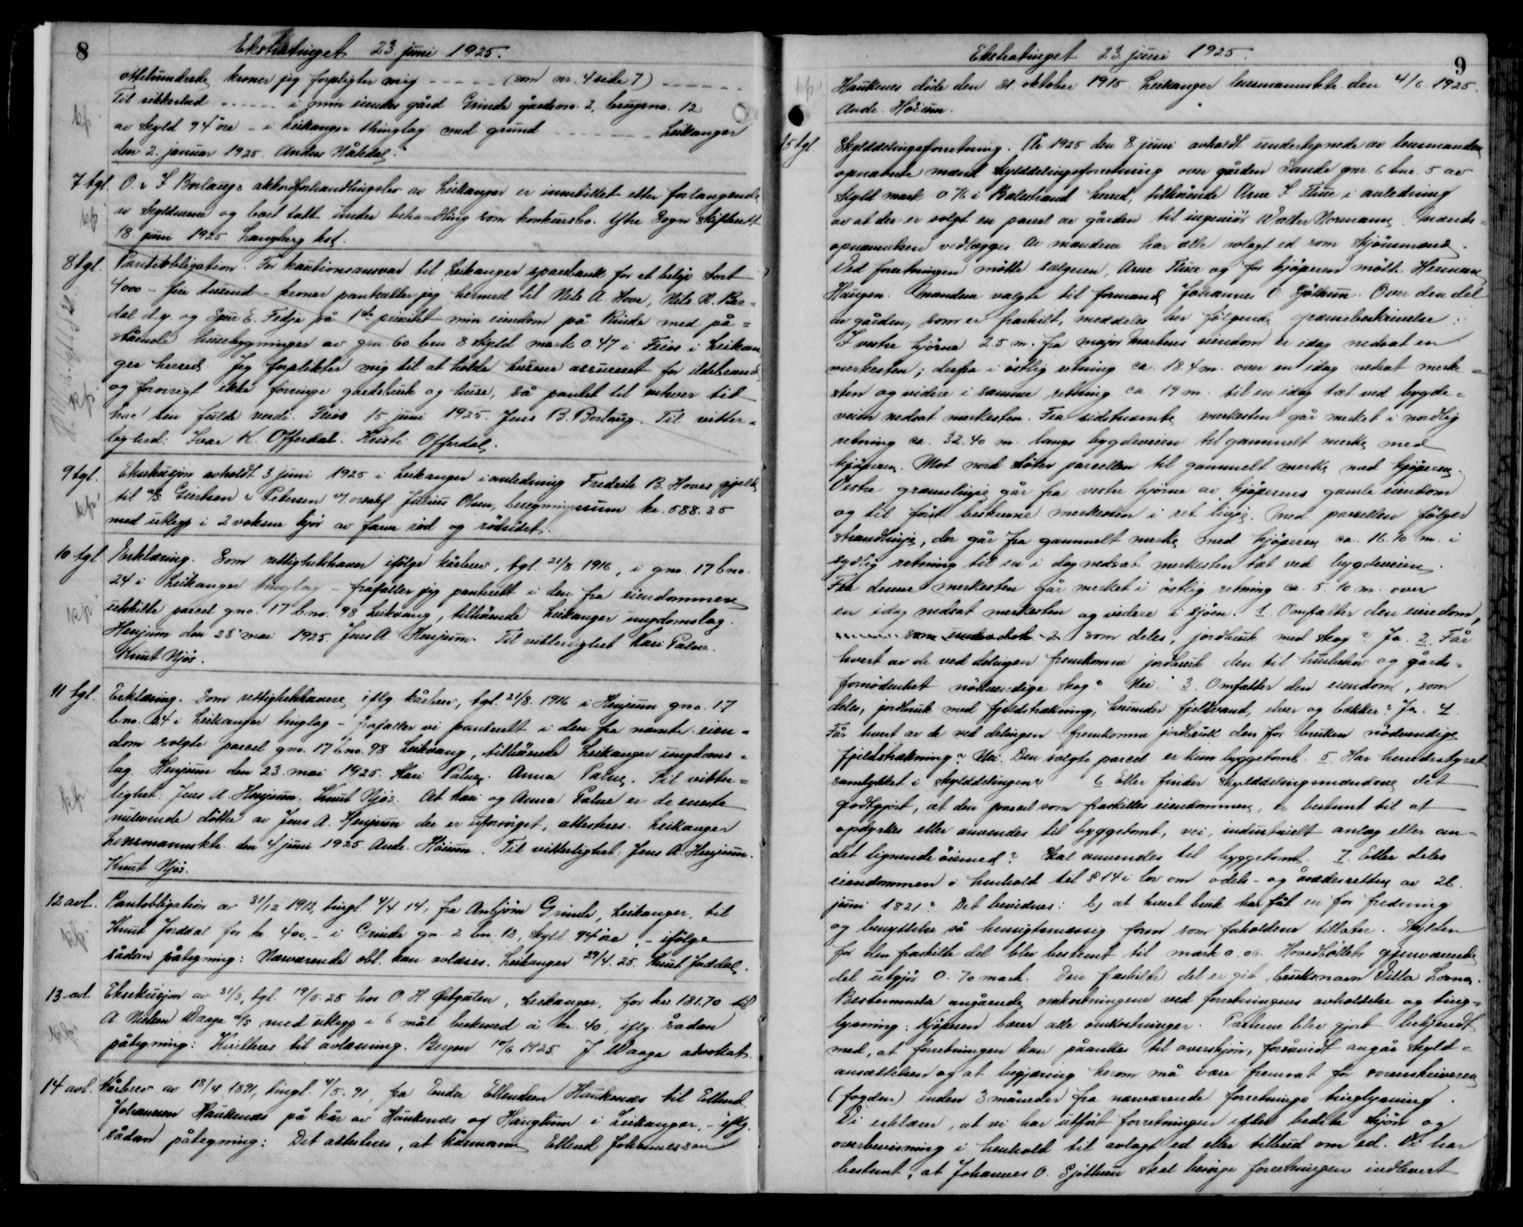 8
Ekstratinget 23. juni 1925.
ottehundrede kroner jeg forpligter mig - - - - (som nr. 4 side 7) - - - -
Til sikkerhed - - - - - i min eiendes gård Grinde gårdsno. 2, bruqsno. 12
av skyld 94 øre - i Leikanger thinglag med grund - - - - - - Leikanger
den 2. januar 1925. Anders Nåkdal.
7 tgl. O. & I Borlaugs akkordforhandlingsbo av Leikanger er innstillet efter forlangende
av skyldnerne og boet tatt under behandling som konkursbo. Ytre Sogn skifterett
18 juni 1925. Langberg kst.
8 tgl. Pantobligation. For kautionsansvar til Leikanger sparebank for et beløp stort
4000 - fire tusend - kroner pantsætter jeg hermed til Nils A Hove, Nils R. Bar-
dal d.y. og Sjur E. Fedje på 1ste prioritet min eiendom på Rinde med på-
stående husebygninger av gnr. 60 bnr 8 skyld mark 0.47 i Feios i Leikan
ger herred. Jeg forplikter mig til at holde husene assureret for ildebrand
og forøvrigt ikke forringe gardsbruk og huse, så pantet til enhver tid
har sin fulde verdi. Feios 15 juni 1925. Jens B. Borlaug. Til vitter-
lighed: Ivar K. Offerdal. Kristi Offerdal.
9 tgl. Eksekusjon avholdt 3 juni 1925 i Leikanger i anledning Fredrik B. Hoves gjeld
til A/S Giertsen & Petersen v/ orsakf. Julius Olsen, beregningssum kr. 588.35
med utlegg i 2 voksne kjør av farve rød og rødsidet.
10 tgl. Erklæring. Som rettighetshaver ifølge kårbrev, tgl. 21/8 1916, i gno. 17 bno.
24 i Leikanger tinglag - frafaller jeg panterett i den fra eiendommen
utskilte parcel gno. 17 bno. 98 Leikvang, tilhørende Leikanger ungdomslag.
Henjum den 23 mai 1925. Jens A Henjum. Til vitterlighet Kari Palne.
Knut Njøs.
11 tgl. Erklæring. Som rettighetshavere iflg kårbrev, tgl. 21/8. 1916 i Henjum gno. 17
bno. 24 i Leikanger tinglag - frafaller vi panterett i den fra nævnte eien-
dom solgte parcel gno. 17 bno. 98 Leikvang, tilhørende Leikanger ungdoms-
lag. Henjum den 23 mai 1925. Kari Palne. Anna Palne. Til vitter-
lighet: Jens A Henjum. Knut Njøs. At Kari og Anna Palne er de eneste
nulevende døtre av Jens A. Henjum der er uforsørget, attesteres. Leikanger
Lensmannsktr. den 4 juni 1925 Andr. Høium. Til vitterlighet: Jens A. Henjum.
Knut Njøs.
12 avl. Pantobligation av 31/12 1913, tingl. 4/4 14, fra Anbjørn Grinde, Leikanger, til
Knut Joddal for kr. 400,- i Grinde gn. 2 bn. 12, skyld 94 øre, - ifølge
sådan påtegning: Nærværende obl. kan avlæses. Leikanger 29/4. 25. Knut Joddal.
13 avl. Eksekusjon av 21/3, tgl. 19/5. 25 hos O. H. Øvtgåten, Leikanger, for kr 131.70 til
A. Nielsen Waage A/S med utlegg i 6 mål birkeved à kr. 40, iflg. sådan
påtegning: Kvitteres til avlæsning. Bergen 10/6 1925 J. Waage advokat.
14 avl. Kårbrev av 18/4 1891, tingl. 4/5. 91, fra Endre Ellendsen Haukenæs til Ellend
Johannesen Haukenæs på kår av Haukenæs og Hanglum i Leikanger, - iflg.
sådan påtegning: Det attesteres, at kårmann Ellend Johannessen
9
Ekstratinget 23. juni 1925.
Haukenes døde den 31. oktober 1915. Leikanger lensmannsktr. den 4/6 1925.
Andr. Høium.
15 tgl. Skylddelingsforretning. År 1925 den 8 juni avholdt undertegnede av lensmanden
opnævnte mænd skylddelingsforretning over gården Sande gnr. 6 bnr. 5 av
skyld mark 0.76 i Balestrand herred, tilhørende Arne S. Tiue i anledning
av at der er solgt en parcel av gården til ingeniør Walter Normann. Mands-
opnævnelsen vedlægges. Av mændene har alle avlagt ed som skjønsmænd.
Ved forretningen møtte sælgeren, Arne Tiue og for kjøperen møtte Herman
Haugen. Mændene valgte til formand Johannes O. Sjøthun. Over den del
av gården, som er fraskilt, meddeles her følgende grænsebeskrivelse:
I vestre hjørne 2.5 m. fra major Martens eiendom er idag nedsat en
merkesten; derfra i østlig retning ca. 18.4 m. over en idag nedsat merke-
sten og videre i samme retning ca. 19 m. til en idag tæt ved bygde-
veien nedsat merkesten. Fra sidstnævnte merkesten går merket i nordlig
retning ca. 32.40 m. langs bygdeveien til gammelt merke med
kjøperen. Mot nord støter parcellen til gammelt merke med kjøperen.
Østre grænselinje går fra vestre hjørne av kjøperens gamle eiendom
og til først beskrevne merkesten i ret linje. Med parcellen følger
strandlinje, der går fra gammelt merke med kjøperen ca. 16.70 m. i
sydlig retning til en i dag nedsat merkesten tæt ved bygdeveien.
Fra denne merkesten går merket i østlig retning ca. 5.10 m. over
en idag nedsat merkesten og videre i sjøen. 1. Omfatter den eiendom,
som deles, jordbruk med skog? Ja. 2. Får
hvert av de ved delingen fremkomne jordbruk den til husbehov og gårds-
fornødenhet nødvendige skog? Nei. 3. Omfatter den eiendom, som
deles, jordbruk med fjeldstrækning, herunder fjeldvand, elver og bækker? Ja. 4.
Får hvert av de ved delingen fremkomne jordbruk den for bruken nødvendige
fjeldstrækning? Nei. Den solgte parcel er kun byggetomt. 5. Har herredsstyret
samtykket i skylddelingen? 6. Eller finder skylddelingsmændene det
godtgjort, at den parcel som fraskilles eiendommen, er bestemt til at
opdyrkes eller anvendes til byggetomt, vei, industrielt anlæg eller an-
det lignende øiemed? Skal anvendes til byggetomt. 7. Eller deles
eiendommen i henhold til § 14 i lov om odels- og åsædesretten av 26.
juni 1821? Det bevidnes: b, at hvert bruk har fåt en for fredning
og benyttelse så hensigtsmæssig form som forholdene tillater. Skylden
for den fraskilte del blev bestemt til mark 0.06. Hovedbølets gjenværende
del utgjør 0.70 mark. Den fraskilte del er git bruksnavn Villa Lorna.
Bestemmelse angående omkostningene ved forretningens avholdelse og ting-
lysning: Kjøperen bærer alle omkostninger. Parterne blev gjort bekjendt
med, at forretningen kan påankes til overskjøn, forsåvidt angår skyld-
ansættelsen og at begjæring herom må være fremsat for sorenskriveren
(fogden) inden 3 måneder fra nærværende forretnings tinglysning.
Vi erklærer, at vi har utført forretningen efter bedste skjøn og
overbevisning i henhold til avlagt ed eller tilbud om ed. Vi har
bestemt, at Johannes O. Sjøthun skal besørge forretningen indlevert